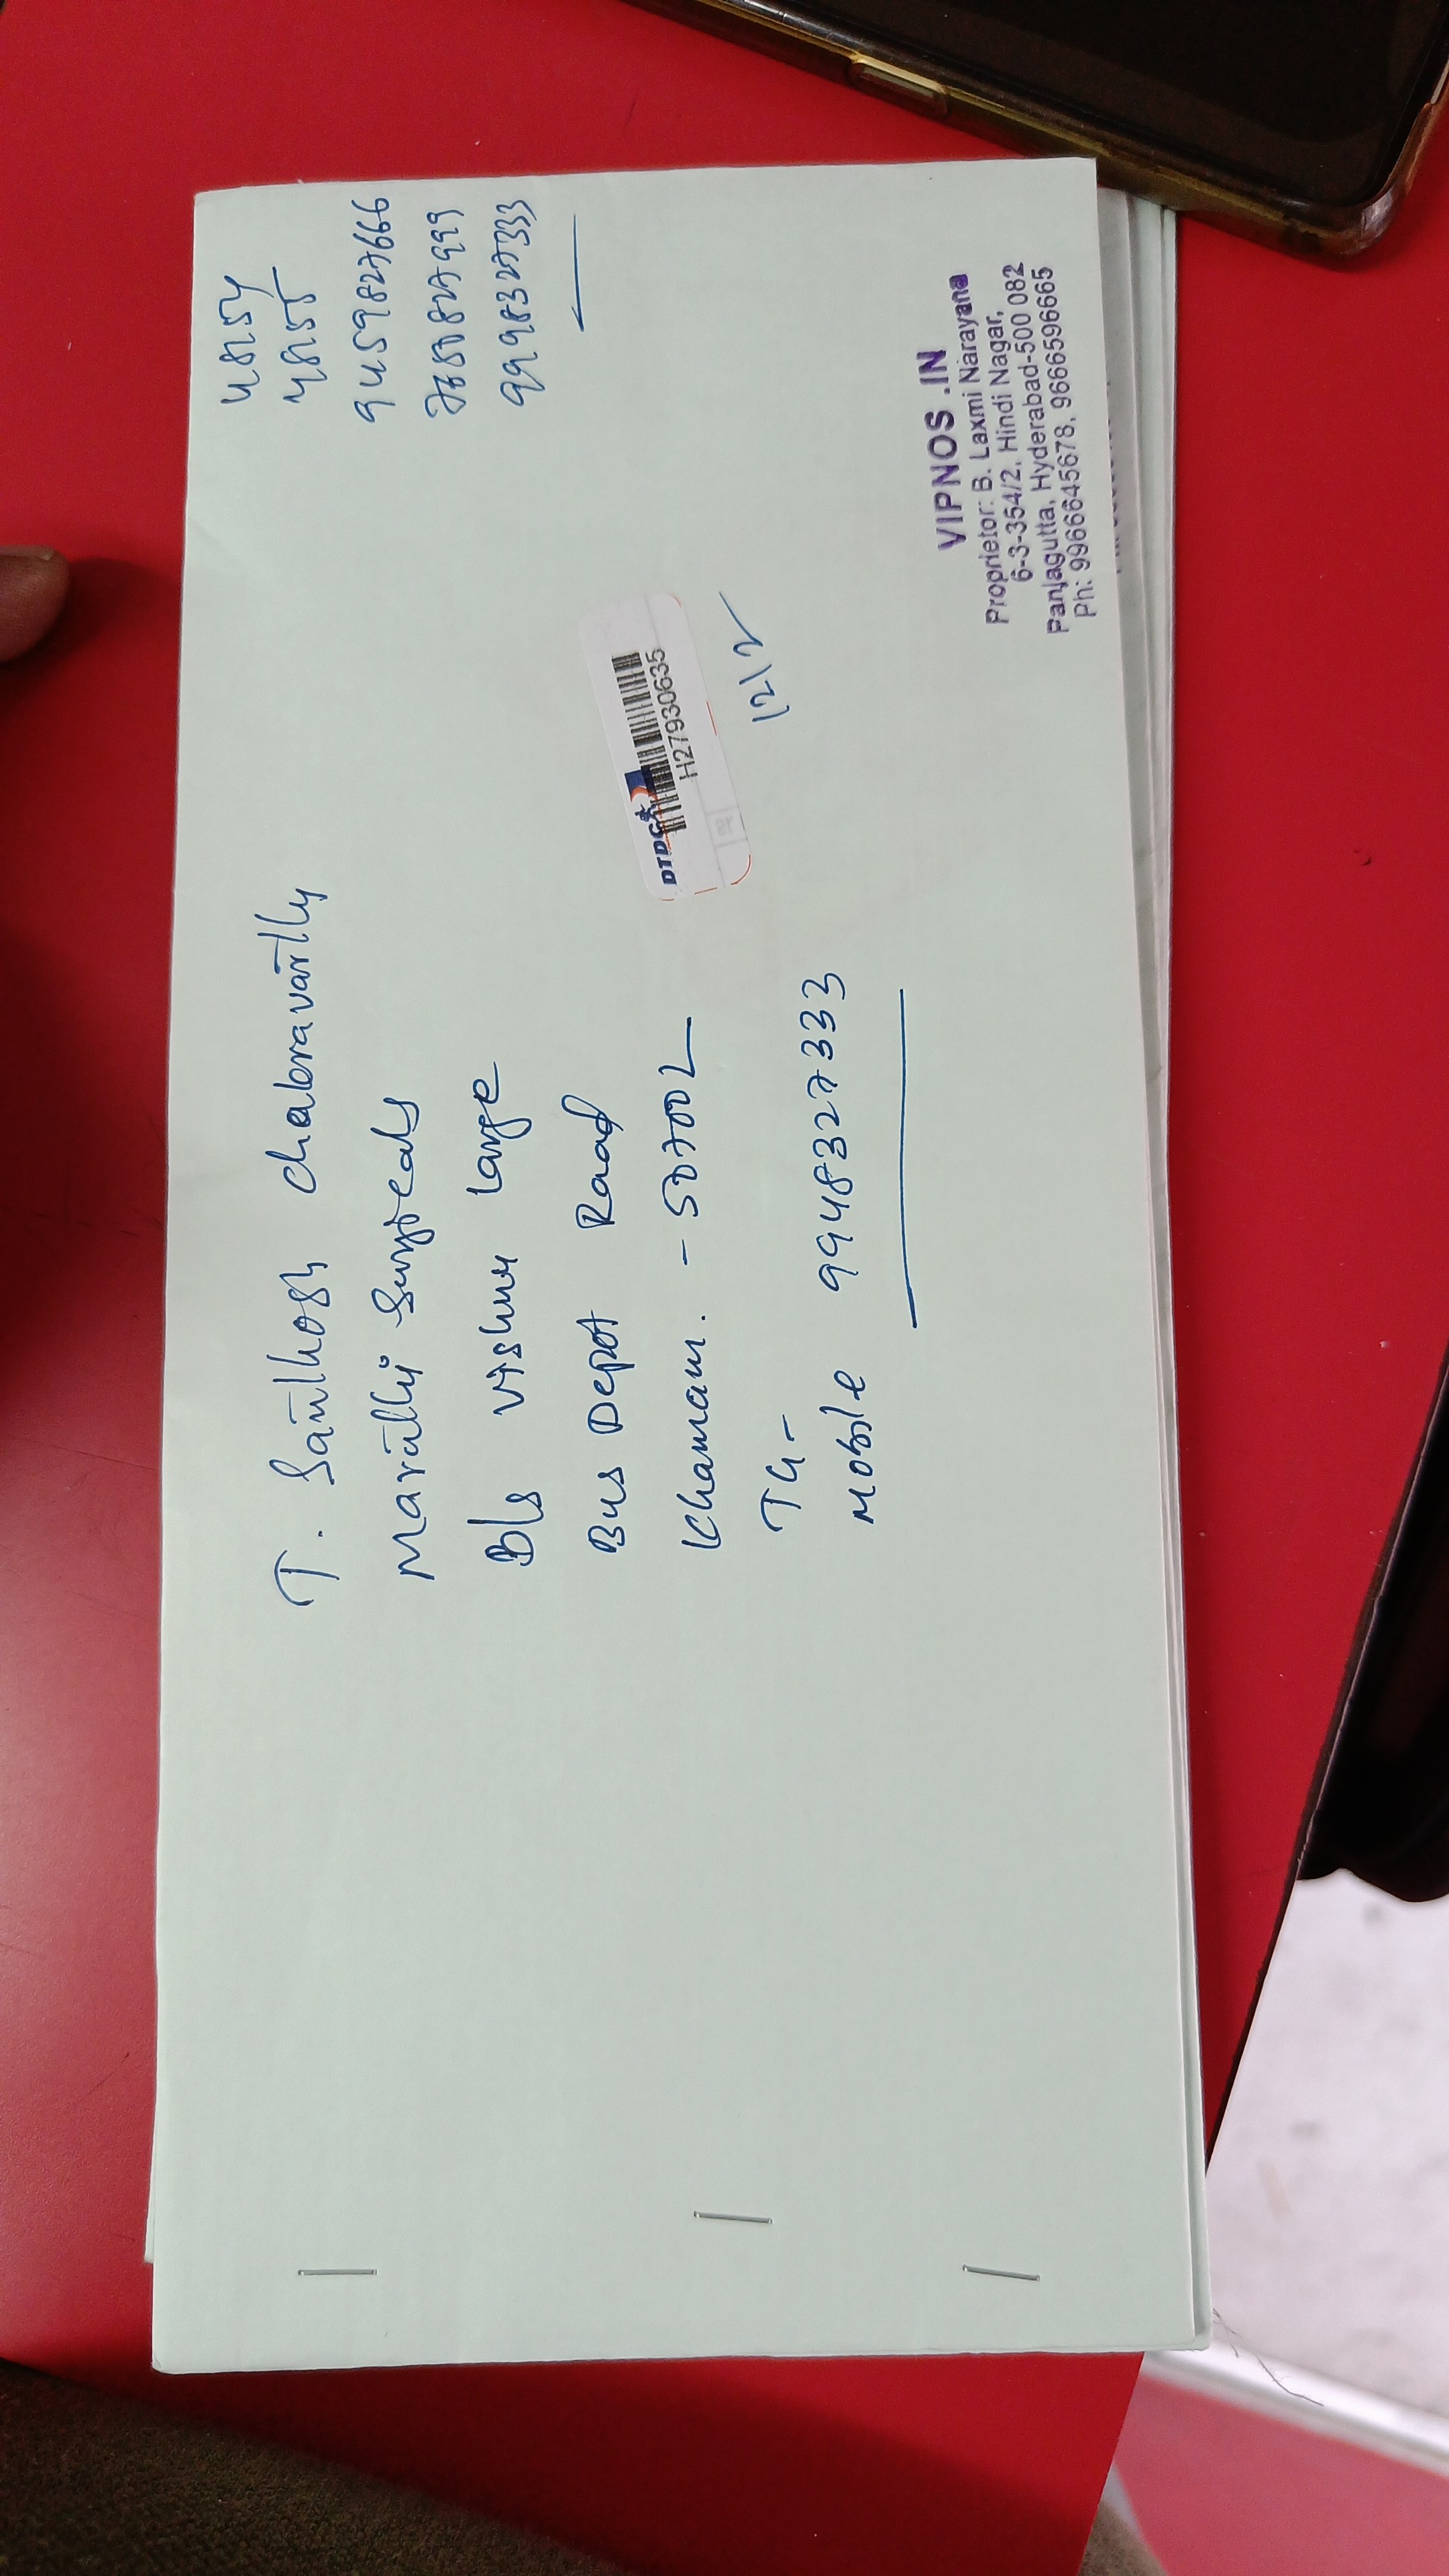 T. Santhosh Chakravarthy
Maruthi Surgicals
B/s Vishnu Large
Bus Depot Road
Khamam. - 507002
TG -
Mobile 9948327333
9459827666
9948327333
DTDC
H27930635
12/2
VIPNOS .IN
Proprietor: B. Laxmi Narayana
6-3-354/2, Hindi Nagar,
Panjagutta, Hyderabad-500 082
Ph: 9966645678, 9666596665